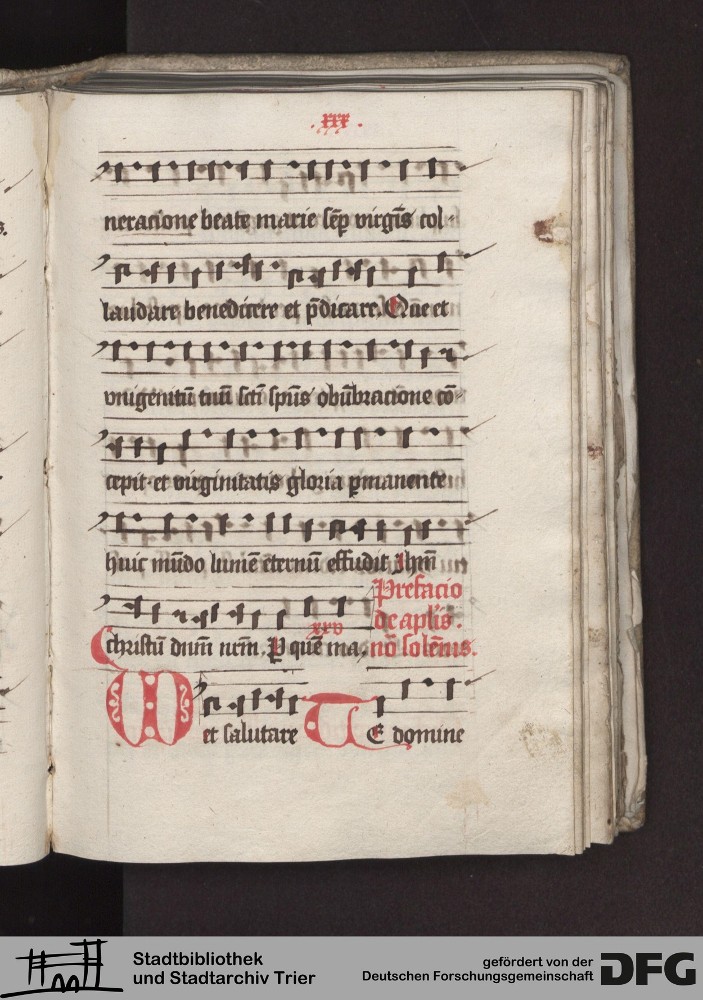 .xxx.
neracione beate marie sēp virgīs col-
laudare benedicere et p̄dicare. Que et
vnigenitū tuū sc̄ti sp̄us obūbracione cō-
cepit et virginitatis gloria ꝑmanente
huic mūdo lumē eternū effudit Ihm̄
Prefacio
de apl̄is.
xxv
christū dnm̄ nrm̄. P quē ma, nō solēnis.
et salutare TE domine
Stadtbibliothek
und Stadtarchiv Trier
gefördert von der
Deutschen Forschungsgemeinschaft
DFG